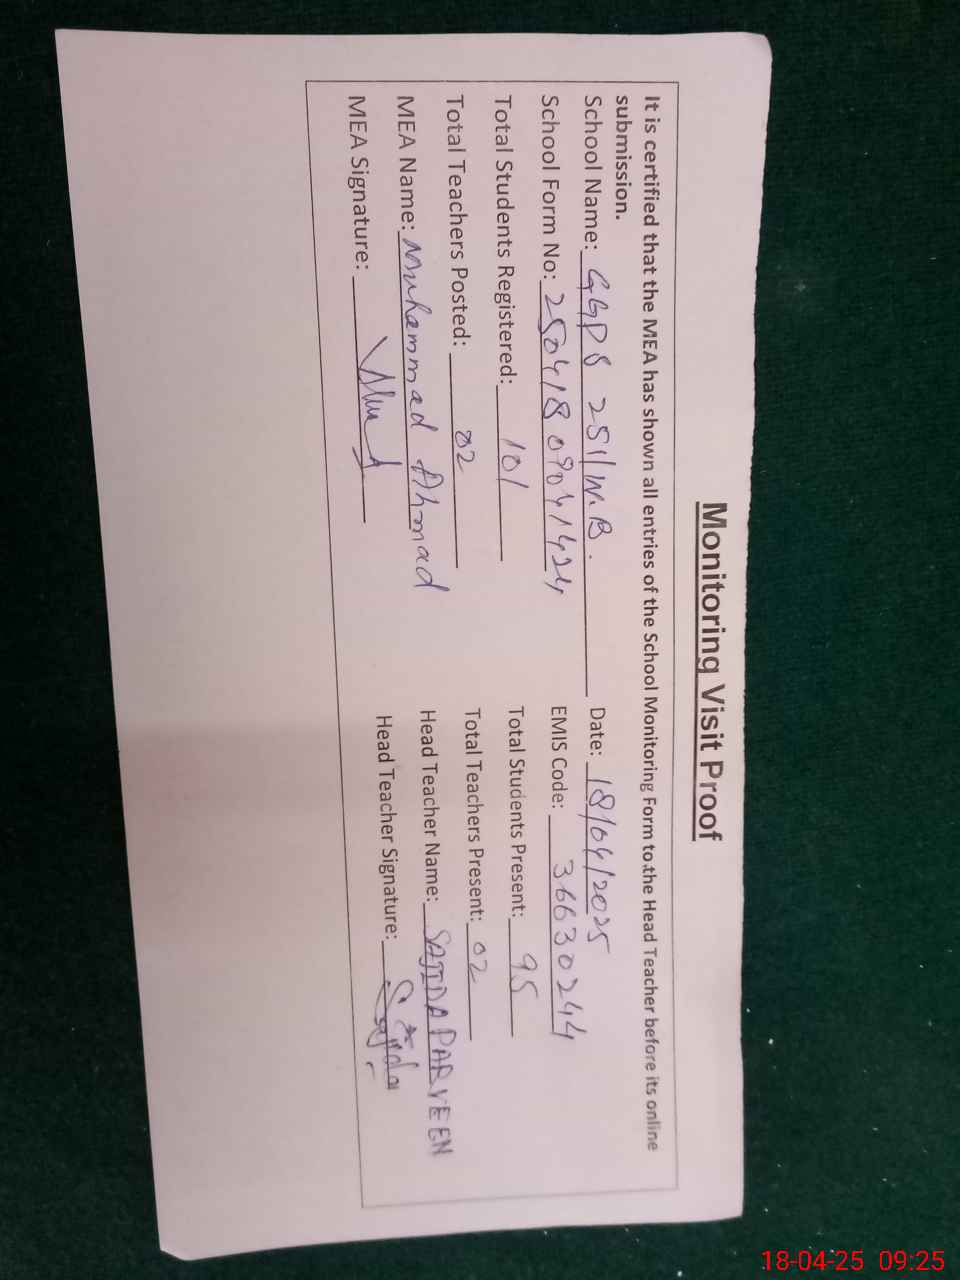 Monitoring Visit Proof
It is certified that the MEA has shown all entries of the School Monitoring Form to the Head Teacher before its online
submission.
School Name: GGPS 251/W.B. Date: 18/04/2025
School Form No: 25041809041424 EMIS Code: 36630244
Total Students Registered: 101 Total Students Present: 95
Total Teachers Posted: 02 Total Teachers Present: 02
MEA Name: Muhammad Ahmad Head Teacher Name: SAJIDA PARVEEN
MEA Signature: Head Teacher Signature: Sajida
18-04-25 09:25